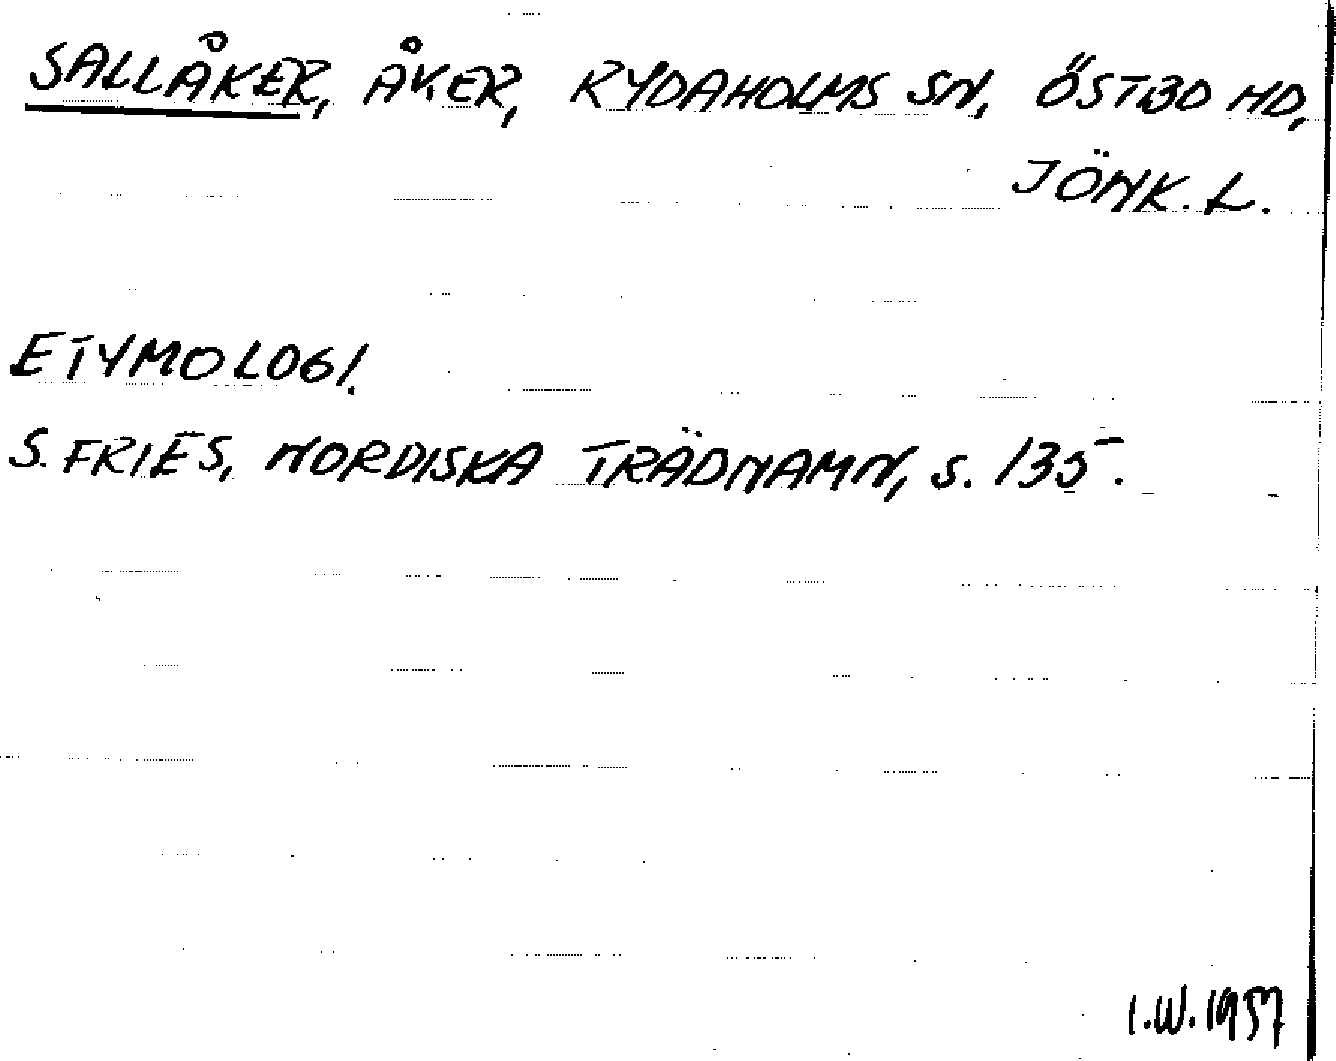 SALLÅKER, ÅKER, RYDAHOLMS SN, ÖSTBO HD,
JÖNK. L.
ETYMOLOGI.
S. FRIES, NORDISKA TRÄDNAMN, S. 135.
I.W. 1957